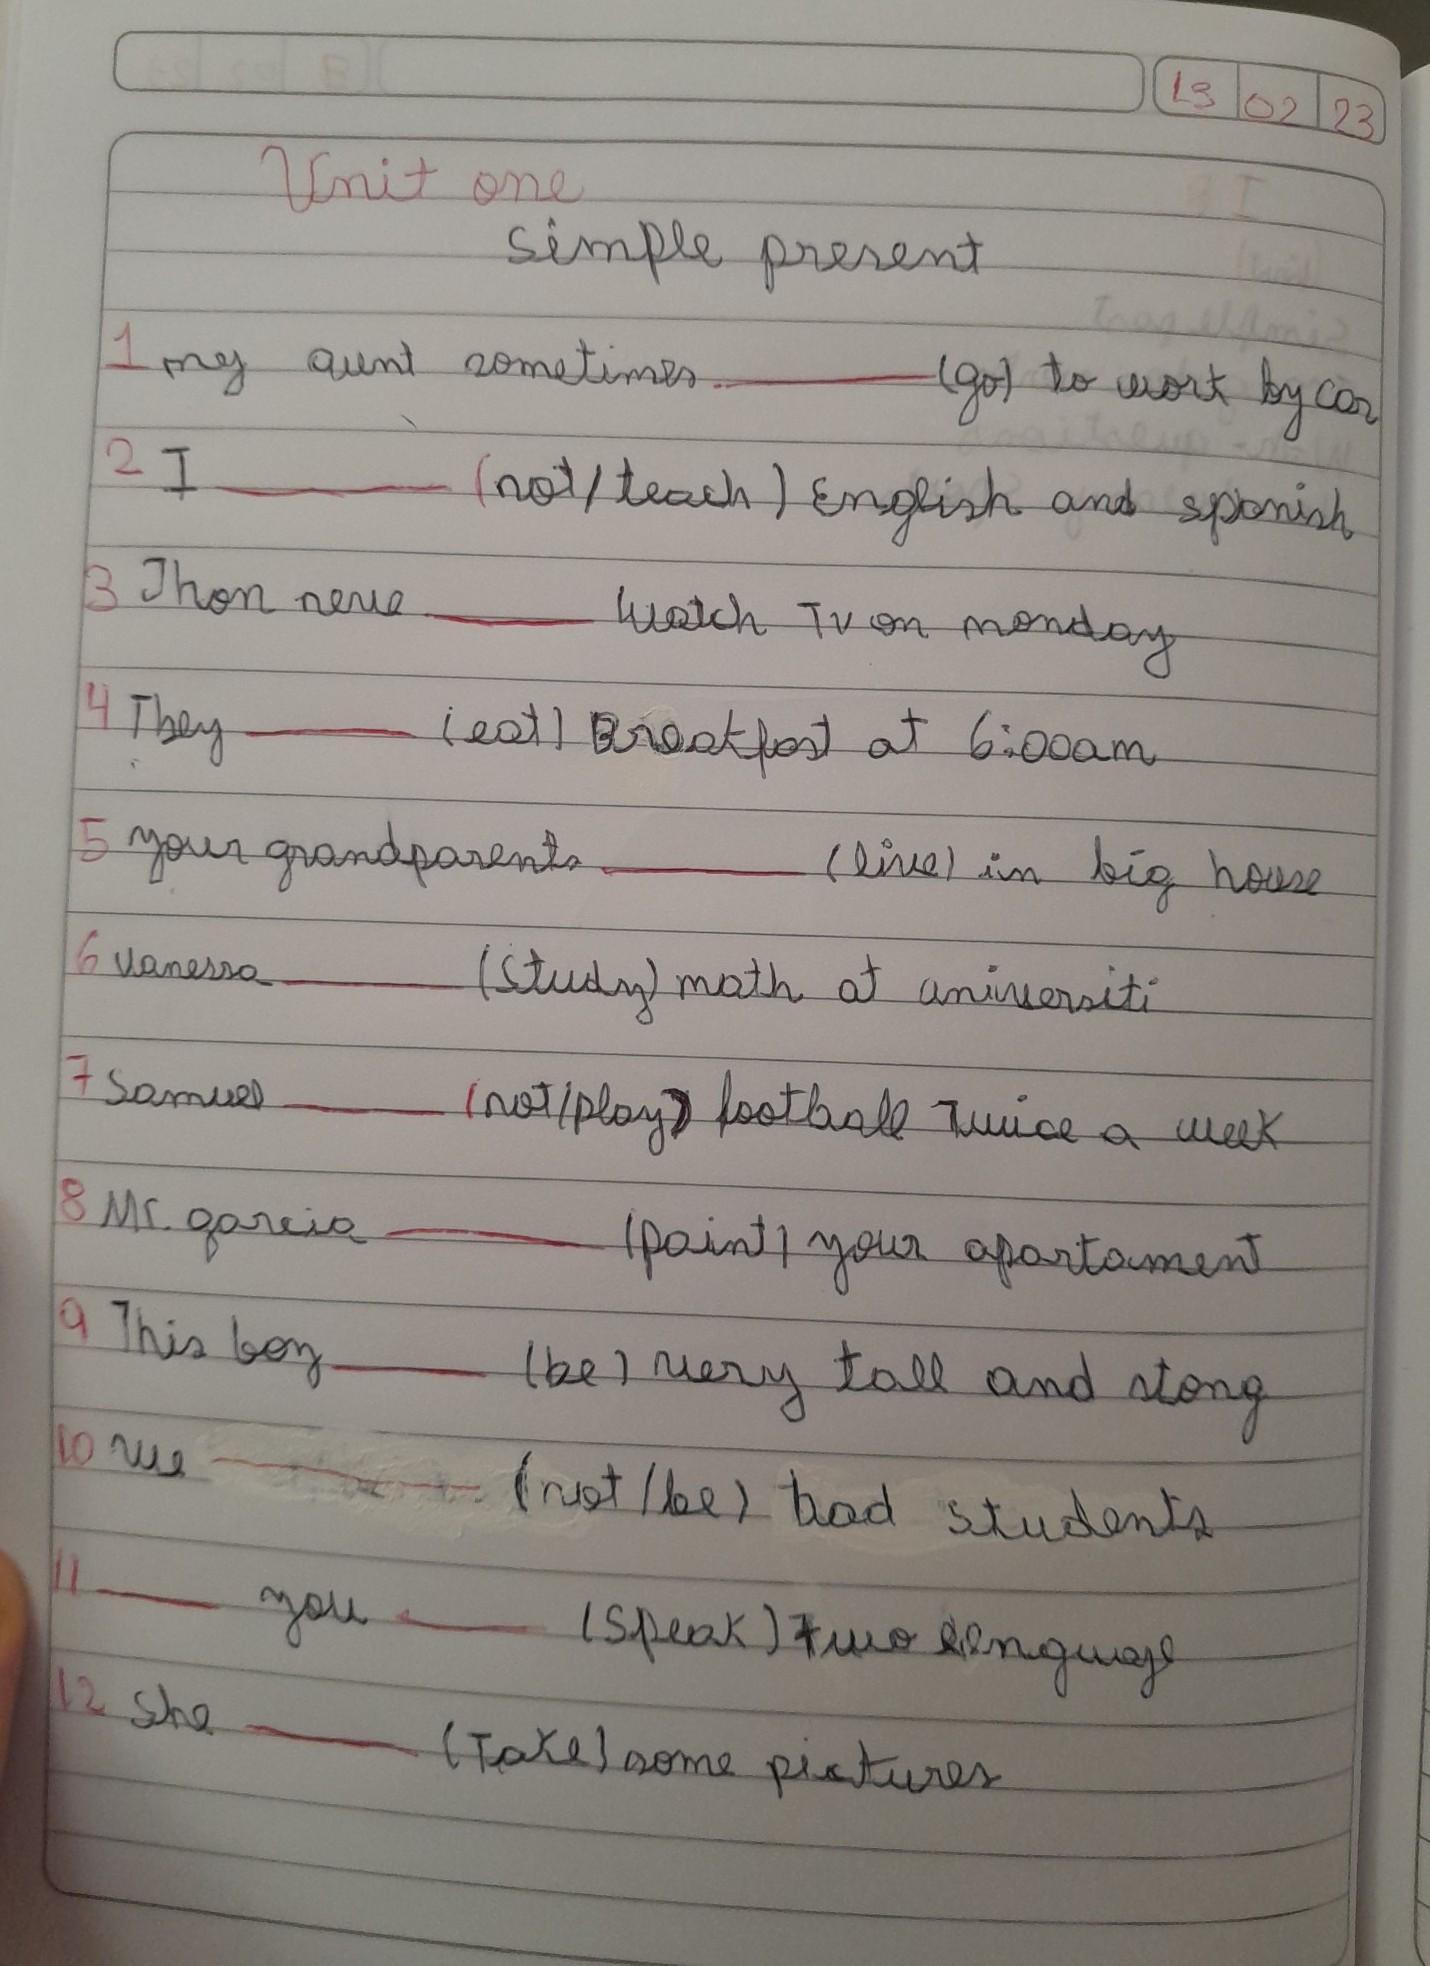 13 02 23
Unit one
simple present
1 my aunt sometimes ______ (go) to work by car
2 I ______ (not/teach) English and spanish
3 Jhon neve ______ watch TV on monday
4 They ______ (eat) Breakfast at 6:00am
5 your grandparents ______ (live) in big house
6 vanessa ______ (study) math at universiti
7 Samuel ______ (not/play) football Twice a week
8 Mr. garcia ______ (paint) your apartament
9 This boy ______ (be) very tall and stong
10 we ______ (not/be) bad students
11 ______ you ______ (speak) two lenguage
12 she ______ (Take) some pictures